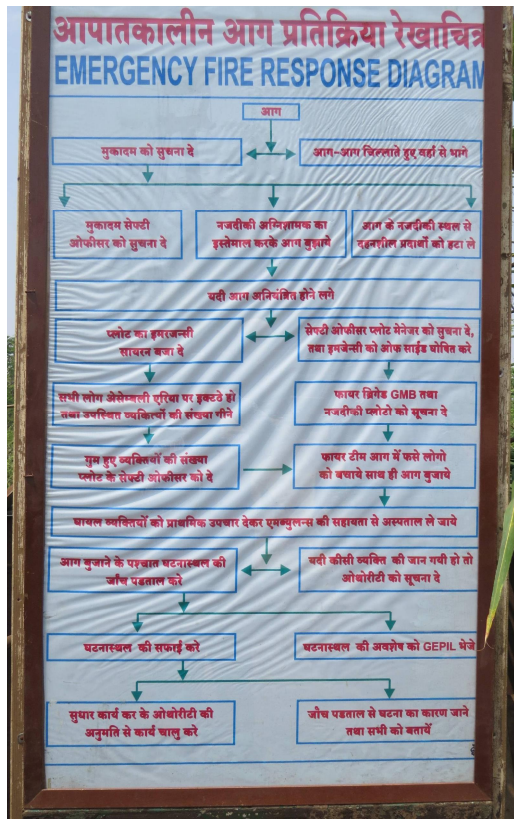 आपातकालीन आग प्रतिक्रिया रेखाचित्र
EMERGENCY FIRE RESPONSE DIAGRAM
आग
मुकादम को सुचना दे
आग-आग चिल्लाते हुए वहाँ से भागे
मुकादम सेफ्टी
ओफीसर को सुचना दे
नजदीकी अग्निशामक का
इस्तेमाल करके आग बुझाये
आग के नजदीकी स्थल से
दहनशील प्रदार्थो को हटा ले
यदी आग अनियंत्रित होने लगे
प्लोट का इमरजन्सी
सायरन बजा दे
सेफ्टी ओफीसर प्लोट मेनेजर को सुचना दे,
तथा इमजेन्सी को ओफ साईड घोषित करे
सभी लोग अेसेम्बली एरिया पर इक्टठे हो
तथा उपस्थित व्यकित्यों की संख्या गीने
फायर ब्रिगेड GMB तथा
नजदीकी प्लोटो को सूचना दे
गुम हुए व्यक्तियों की संख्या
प्लोट के सेफ्टी ओफीसर को दे
फायर टीम आग में फसे लोगो
को बचाये साथ ही आग बुजाये
घायल व्यक्तियों को प्राथमिक उपचार देकर एमब्युलन्स की सहायता से अस्पताल ले जाये
आग बुजाने के पश्चात घटनास्थल की
जाँच पडताल करे
यदी कीसी व्यक्ति की जान गयी हो तो
ओथोरीटी को सूचना दे
घटनास्थल की सफाई करे
घटनास्थल की अवशेष को GEPIL भेजे
सुधार कार्य कर के ओथोरीटी की
अनुमति से कार्य चालु करे
जाँच पडताल से घटना का कारण जाने
तथा सभी को बतायें